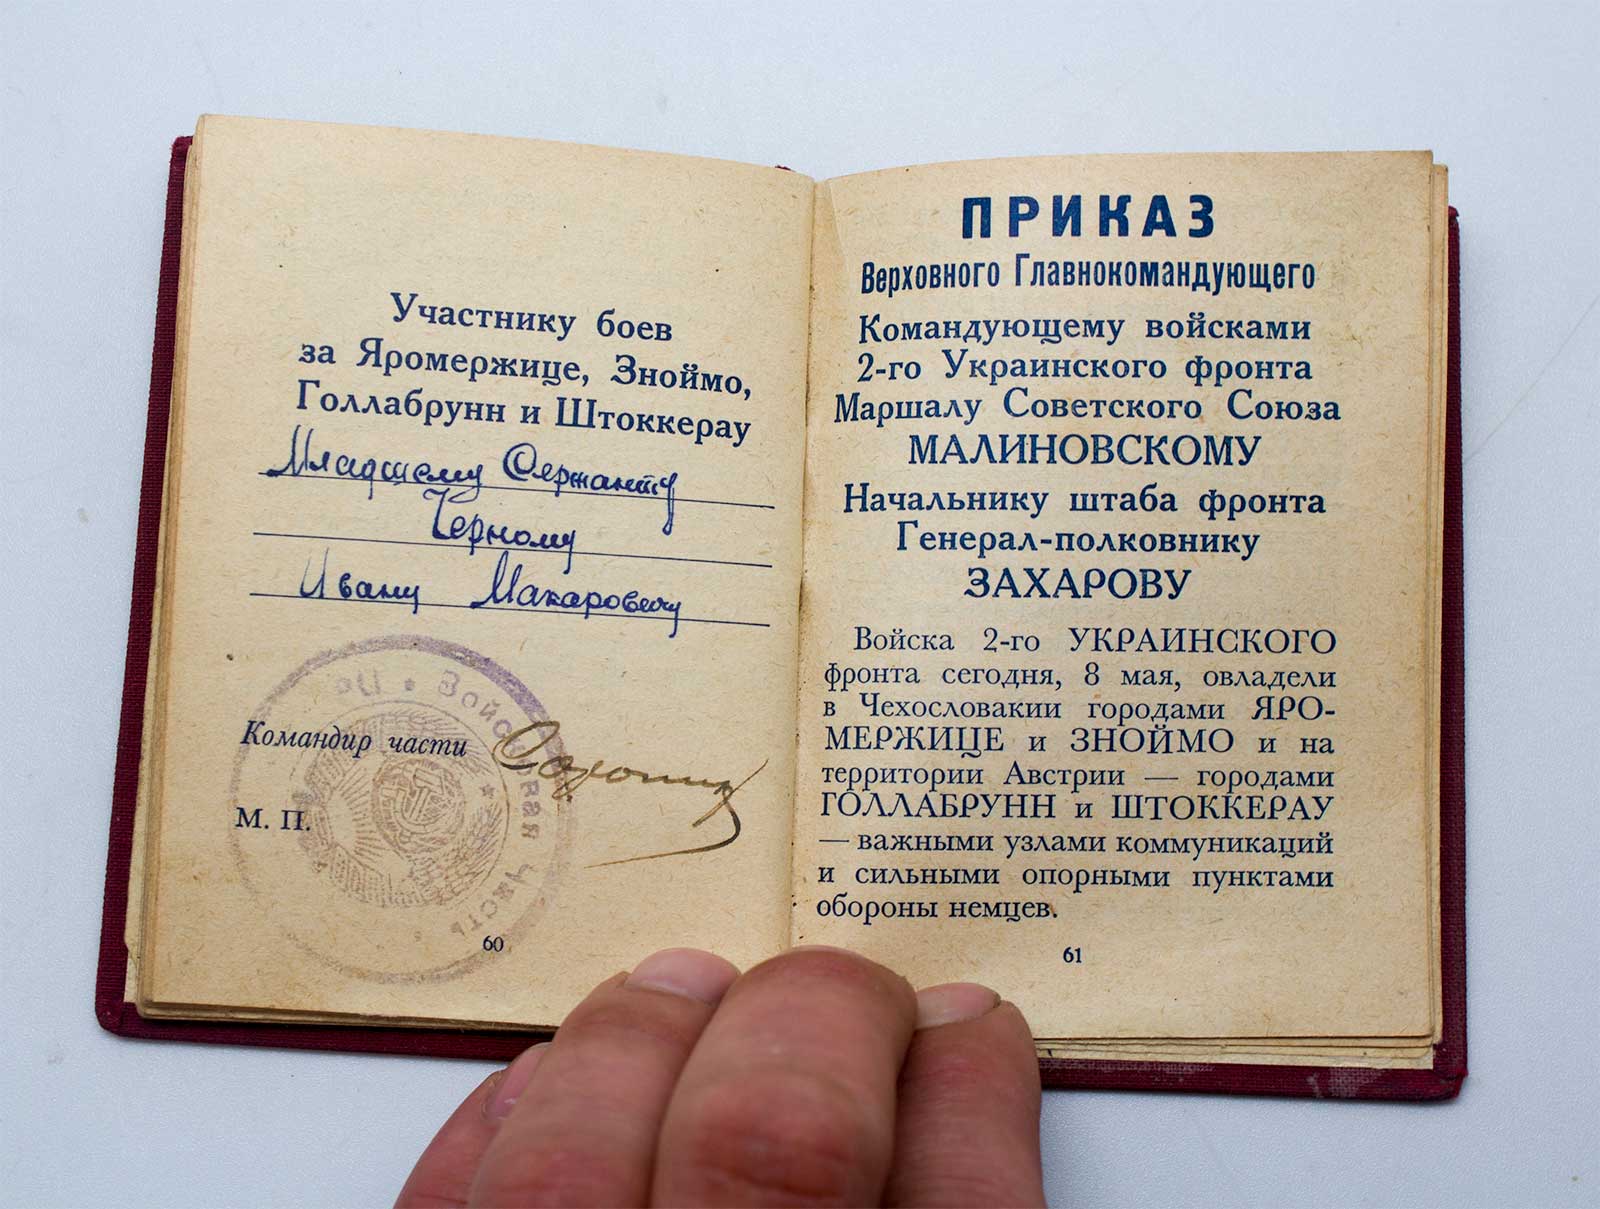 Участнику боев
за Яромержице, Зноймо,
Голлабрунн и Штоккерау
Младшему Сержанту
Черному
Ивану Макаровичу
Войсковая Часть
Командир части
М. П.
60
ПРИКАЗ
Верховного Главнокомандующего
Командующему войсками
2-го Украинского фронта
Маршалу Советского Союза
МАЛИНОВСКОМУ
Начальнику штаба фронта
Генерал-полковнику
ЗАХАРОВУ
Войска 2-го УКРАИНСКОГО
фронта сегодня, 8 мая, овладели
в Чехословакии городами ЯРО-
МЕРЖИЦЕ и ЗНОЙМО и на
территории Австрии — городами
ГОЛЛАБРУНН и ШТОККЕРАУ
— важными узлами коммуникаций
и сильными опорными пунктами
обороны немцев.
61